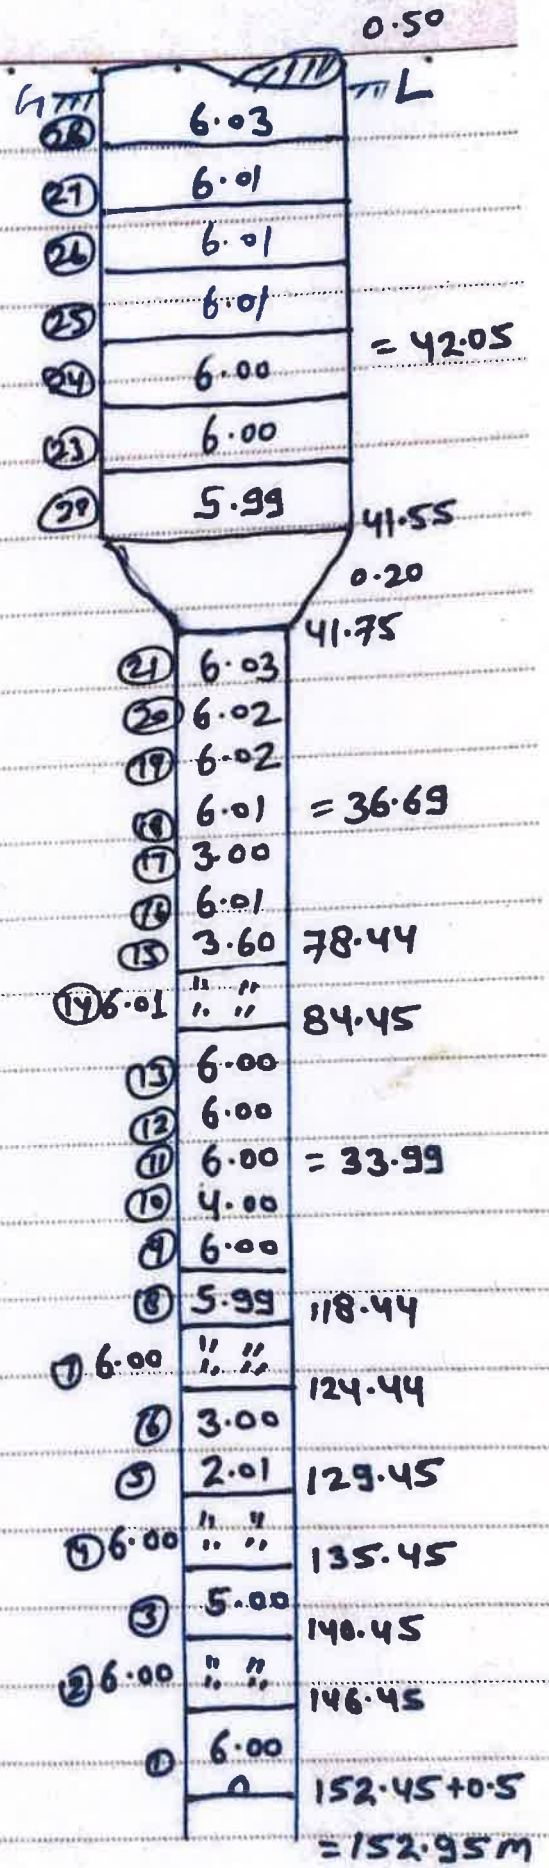 0.50
G L
28 6.03
27 6.01
26 6.01
25 6.01
= 42.05
24 6.00
23 6.00
22 5.99
41.55
0.20
41.75
21 6.03
20 6.02
19 6.02
18 6.01 = 36.69
17 3.00
16 6.01
15 3.60 78.44
14 6.01 " " " "
84.45
13 6.00
12 6.00
11 6.00 = 33.99
10 4.00
9 6.00
8 5.99 118.44
7 6.00 " " " "
124.44
6 3.00
5 2.01 129.45
4 6.00 " " " "
135.45
3 5.00
140.45
2 6.00 " " " "
146.45
1 6.00
152.45+0.5
= 152.95m